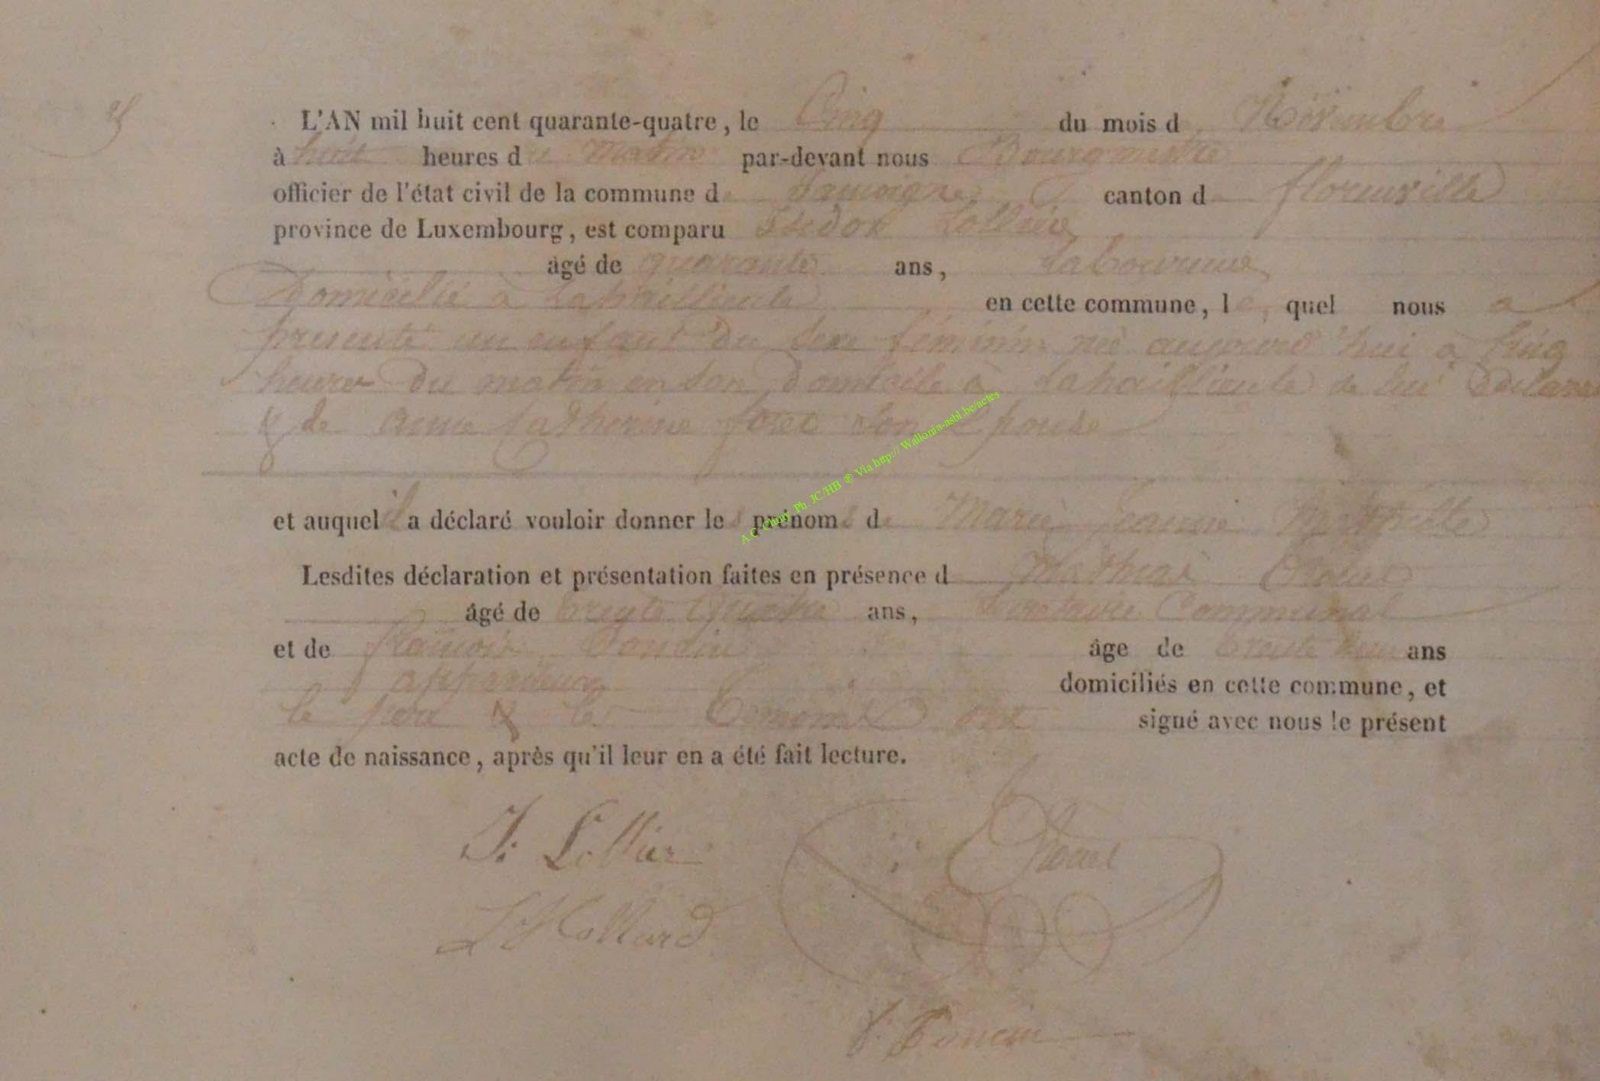 L'AN mil huit cent quarante-quatre, le Cinq du mois d Novembre
à huit heures du Matin par-devant nous Bourgmestre
officier de l'état civil de la commune de Jamoigne canton d florenville
province de Luxembourg, est comparu Isidor Lollier
âgé de quarante ans, Laboureur
Domicilié à en cette commune, le quel nous a
presenté un enfant du sexe féminin né aujourd'hui à Cinq
heures du matin en son domicile à de lui Déclarant
& de anne Catherine son Epouse
et auquel il a déclaré vouloir donner les prénoms de Marie Jeanne
Lesdites déclaration et présentation faites en présence d Mathias
âgé de trente quatre ans, Secretaire Communal
et de françois Poncin âge de trente ans
domiciliés en cette commune, et
le père & les temoins ont signé avec nous le présent
acte de naissance, après qu'il leur en a été fait lecture.
J. Lollier
Hollard
f. Poncin
A.C. Chiny Ph. JC/HB © Via http://Wallonia-asbl.be/actes